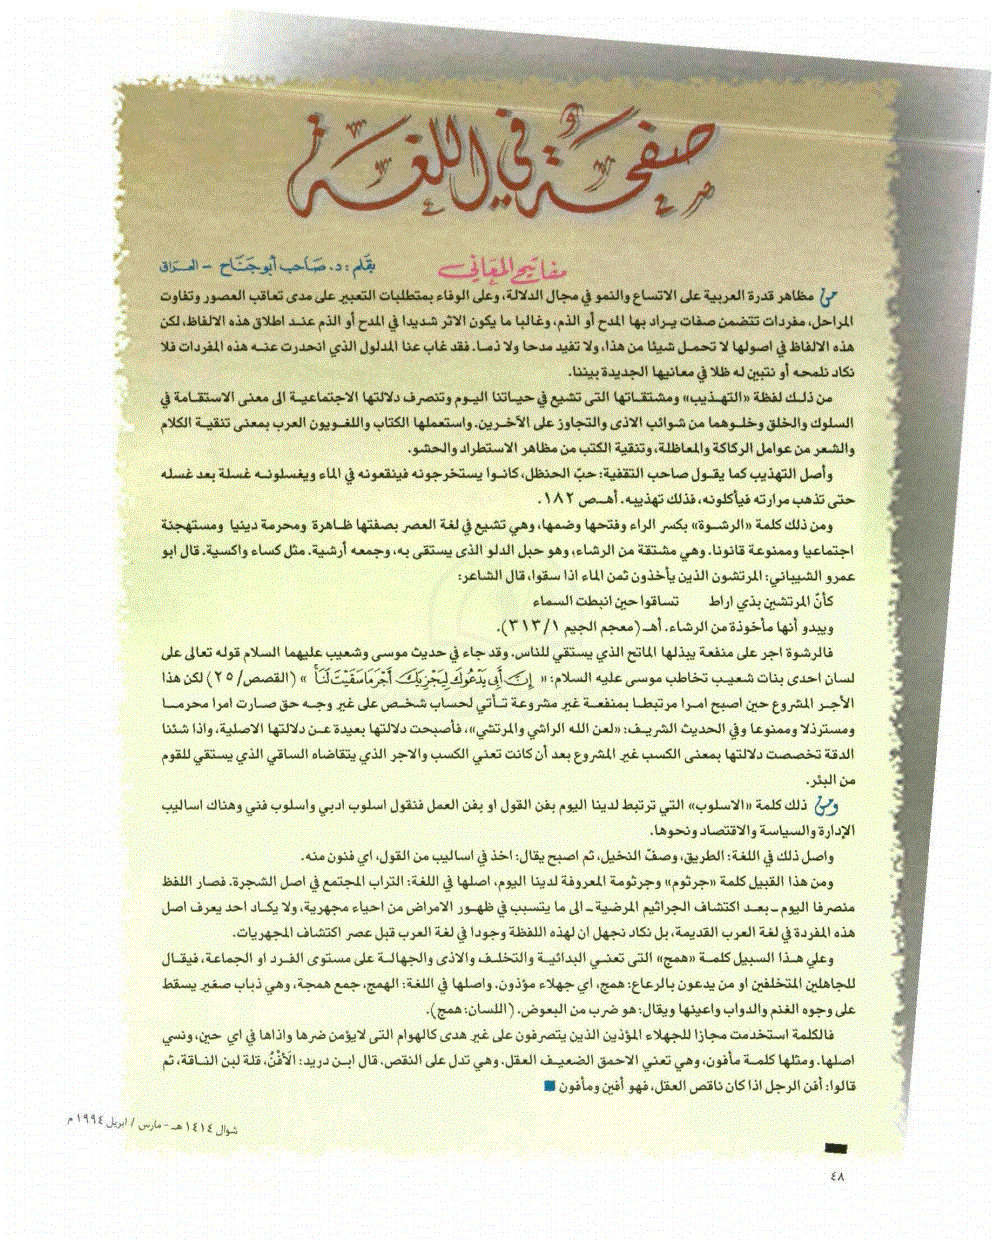 صفحة في اللغة
مفاتيح المعاني
بقلم: د. صاحب أبو جناح - العراق
من مظاهر قدرة العربية على الاتساع والنمو في مجال الدلالة، وعلى الوفاء بمتطلبات التعبير على مدى تعاقب العصور وتفاوت
المراحل، مفردات تتضمن صفات يراد بها المدح أو الذم، وغالبا ما يكون الاثر شديدا في المدح أو الذم عند اطلاق هذه الالفاظ، لكن
هذه الالفاظ في اصولها لا تحمل شيئا من هذا، ولا تفيد مدحا ولا ذما. فقد غاب عنا المدلول الذي انحدرت عنه هذه المفردات فلا
نكاد نلمحه أو نتبين له ظلا في معانيها الجديدة بيننا.
من ذلك لفظة «التهذيب» ومشتقاتها التى تشيع في حياتنا اليوم وتنصرف دلالتها الاجتماعية الى معنى الاستقامة في
السلوك والخلق وخلوهما من شوائب الاذى والتجاوز على الآخرين. واستعملها الكتاب واللغويون العرب بمعنى تنقية الكلام
والشعر من عوامل الركاكة والمعاظلة، وتنقية الكتب من مظاهر الاستطراد والحشو.
وأصل التهذيب كما يقول صاحب التقفية: حبّ الحنظل، كانوا يستخرجونه فينقعونه في الماء ويغسلونه غسلة بعد غسله
حتى تذهب مرارته فيأكلونه، فذلك تهذيبه. أهـ ص ١٨٢.
ومن ذلك كلمة «الرشوة» بكسر الراء وفتحها وضمها، وهي تشيع في لغة العصر بصفتها ظاهرة ومحرمة دينيا ومستهجنة
اجتماعيا وممنوعة قانونا. وهي مشتقة من الرشاء، وهو حبل الدلو الذى يستقى به، وجمعه أرشية. مثل كساء واكسية. قال ابو
عمرو الشيباني: المرتشون الذين يأخذون ثمن الماء اذا سقوا، قال الشاعر:
كأنّ المرتشين بذي اراط تساقوا حين انبطت السماء
ويبدو أنها مأخوذة من الرشاء. أهـ (معجم الجيم ٣١٣/١).
فالرشوة اجر على منفعة يبذلها الماتح الذي يستقي للناس. وقد جاء في حديث موسى وشعيب عليهما السلام قوله تعالى على
لسان احدى بنات شعيب تخاطب موسى عليه السلام: « إِنَّ أَبِي يَدْعُوكَ لِيَجْزِيَكَ أَجْرَ مَا سَقَيْتَ لَنَا » (القصص/٢٥) لكن هذا
الأجر المشروع حين اصبح امرا مرتبطا بمنفعة غير مشروعة تأتي لحساب شخص على غير وجه حق صارت امرا محرما
ومسترذلا وممنوعا وفي الحديث الشريف: «لعن الله الراشي والمرتشي»، فأصبحت دلالتها بعيدة عن دلالتها الاصلية، واذا شئنا
الدقة تخصصت دلالتها بمعنى الكسب غير المشروع بعد أن كانت تعني الكسب والاجر الذي يتقاضاه الساقي الذي يستقي للقوم
من البئر.
ومن ذلك كلمة «الاسلوب» التي ترتبط لدينا اليوم بفن القول او بفن العمل فنقول اسلوب ادبي واسلوب فني وهناك اساليب
الإدارة والسياسة والاقتصاد ونحوها.
واصل ذلك في اللغة: الطريق، وصفّ النخيل، ثم اصبح يقال: اخذ في اساليب من القول، اي فنون منه.
ومن هذا القبيل كلمة «جرثوم» وجرثومة المعروفة لدينا اليوم، اصلها في اللغة: التراب المجتمع في اصل الشجرة. فصار اللفظ
منصرفا اليوم ـ بعد اكتشاف الجراثيم المرضية ـ الى ما يتسبب في ظهور الامراض من احياء مجهرية، ولا يكاد احد يعرف اصل
هذه المفردة في لغة العرب القديمة، بل نكاد نجهل ان لهذه اللفظة وجودا في لغة العرب قبل عصر اكتشاف المجهريات.
وعلي هذا السبيل كلمة «همج» التى تعني البدائية والتخلف والاذى والجهالة على مستوى الفرد او الجماعة، فيقال
للجاهلين المتخلفين او من يدعون بالرعاع: همج، اي جهلاء مؤذون. واصلها في اللغة: الهمج، جمع همجة، وهي ذباب صغير يسقط
على وجوه الغنم والدواب واعينها ويقال: هو ضرب من البعوض. (اللسان: همج).
فالكلمة استخدمت مجازا للجهلاء المؤذين الذين يتصرفون على غير هدى كالهوام التى لايؤمن ضرها واذاها في اي حين، ونسي
اصلها. ومثلها كلمة مأفون، وهي تعني الاحمق الضعيف العقل. وهي تدل على النقص. قال ابن دريد: الأَفْنُ، قلة لبن الناقة، ثم
قالوا: أفن الرجل اذا كان ناقص العقل، فهو أفين ومأفون
شوال ١٤١٤ هـ - مارس / ابريل ١٩٩٤ م
٤٨